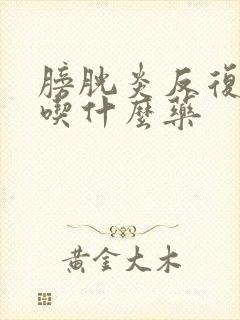 膀胱炎反復
喫什麼藥
黃金大木